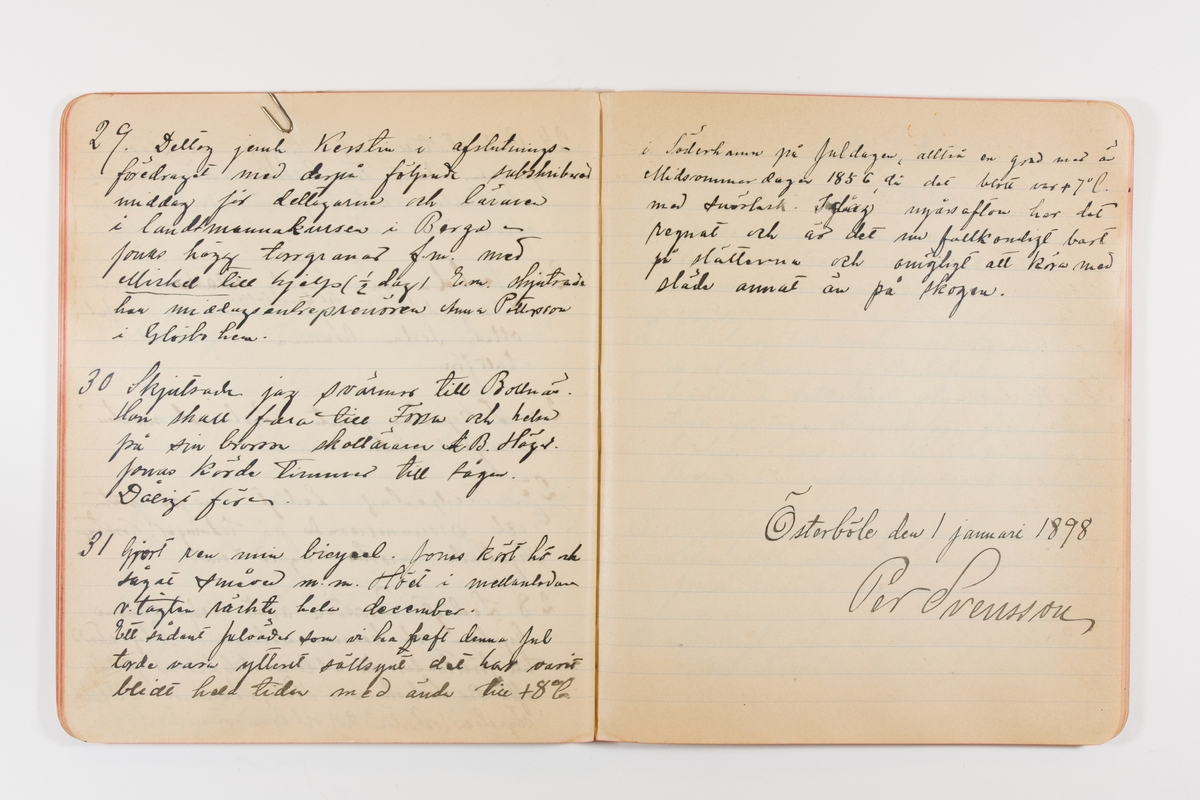 29. Deltog jemte Kerstin i afslutnings-
föredraget med derpå följande subskriberad
middag för deltagarne och lärarne
i landtmannakursen i Berga
Jonas högg torrgranar f.m. med
Mickel till hjelp (½ dag) E.m. skjutsade
han middagsentreprenören Anna Pettersson
i Glösbo hem.
30 Skjutsade jag svärmor till Bollnäs.
Hon skall fara till Forsa och helsa
på sin broson skolläraren B. Höger.
Jonas körde timmer till sågen.
Dåligt före.
31 Gjort ren min bicycel. Jonas kört hö och
sågat småved m.m. Höet i mellanladan
v. tägten räckte hela december.
Ett sådant julväder som vi ha haft denna jul
torde vara ytterst sällsynt det har varit
blidt hela tiden med ända till +8°C
i Söderhamn på Juldagen, alltså en grad mer än
Midsommardagen 1856, då det blott var +7°C.
med snöslask. I dag nyårsafton har det
regnat och är det nu fullkomligt bart
på slätterna och omöjligt att köra med
släde annat än på skogen.
Österböle den 1 januari 1898
Per Svensson